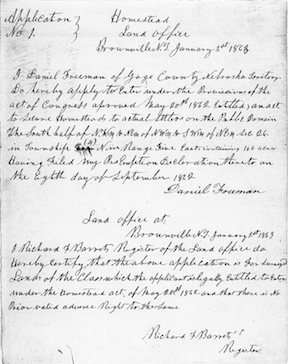 Application } Homestead
No 1. } Land Office
Brownville N.T. January 1st 1863
I Daniel Freeman of Gage County Nebraska Territory
Do hereby apply to Enter under the Provisions of the
act of Congress aproved May 20th 1862 Entitled, an act
to Secure Homesteads to actual Settlers on the Public Domain
The South half of N.W¼ & N.E¼ of N.W¼ & S.W¼ of N.E¼ Sec. 26.
in Township (4) N. in Range Five East. containing 160 acres
Having Filed my Pre Emption Declaration thereto on
the Eighth day of September 1862
Daniel Freeman
Land office at
Brownville N.T. January 1st 1863
I Richard F Barrett Register of the Land office do
Hereby certify that the above application is For Surveyed
Lands of the Class which the applicant is legally Entitled to Enter
under the Homestead act of May 20th 1862 and that there is No
Prior valid adverse Right to the Same
Richard F Barrett
Register